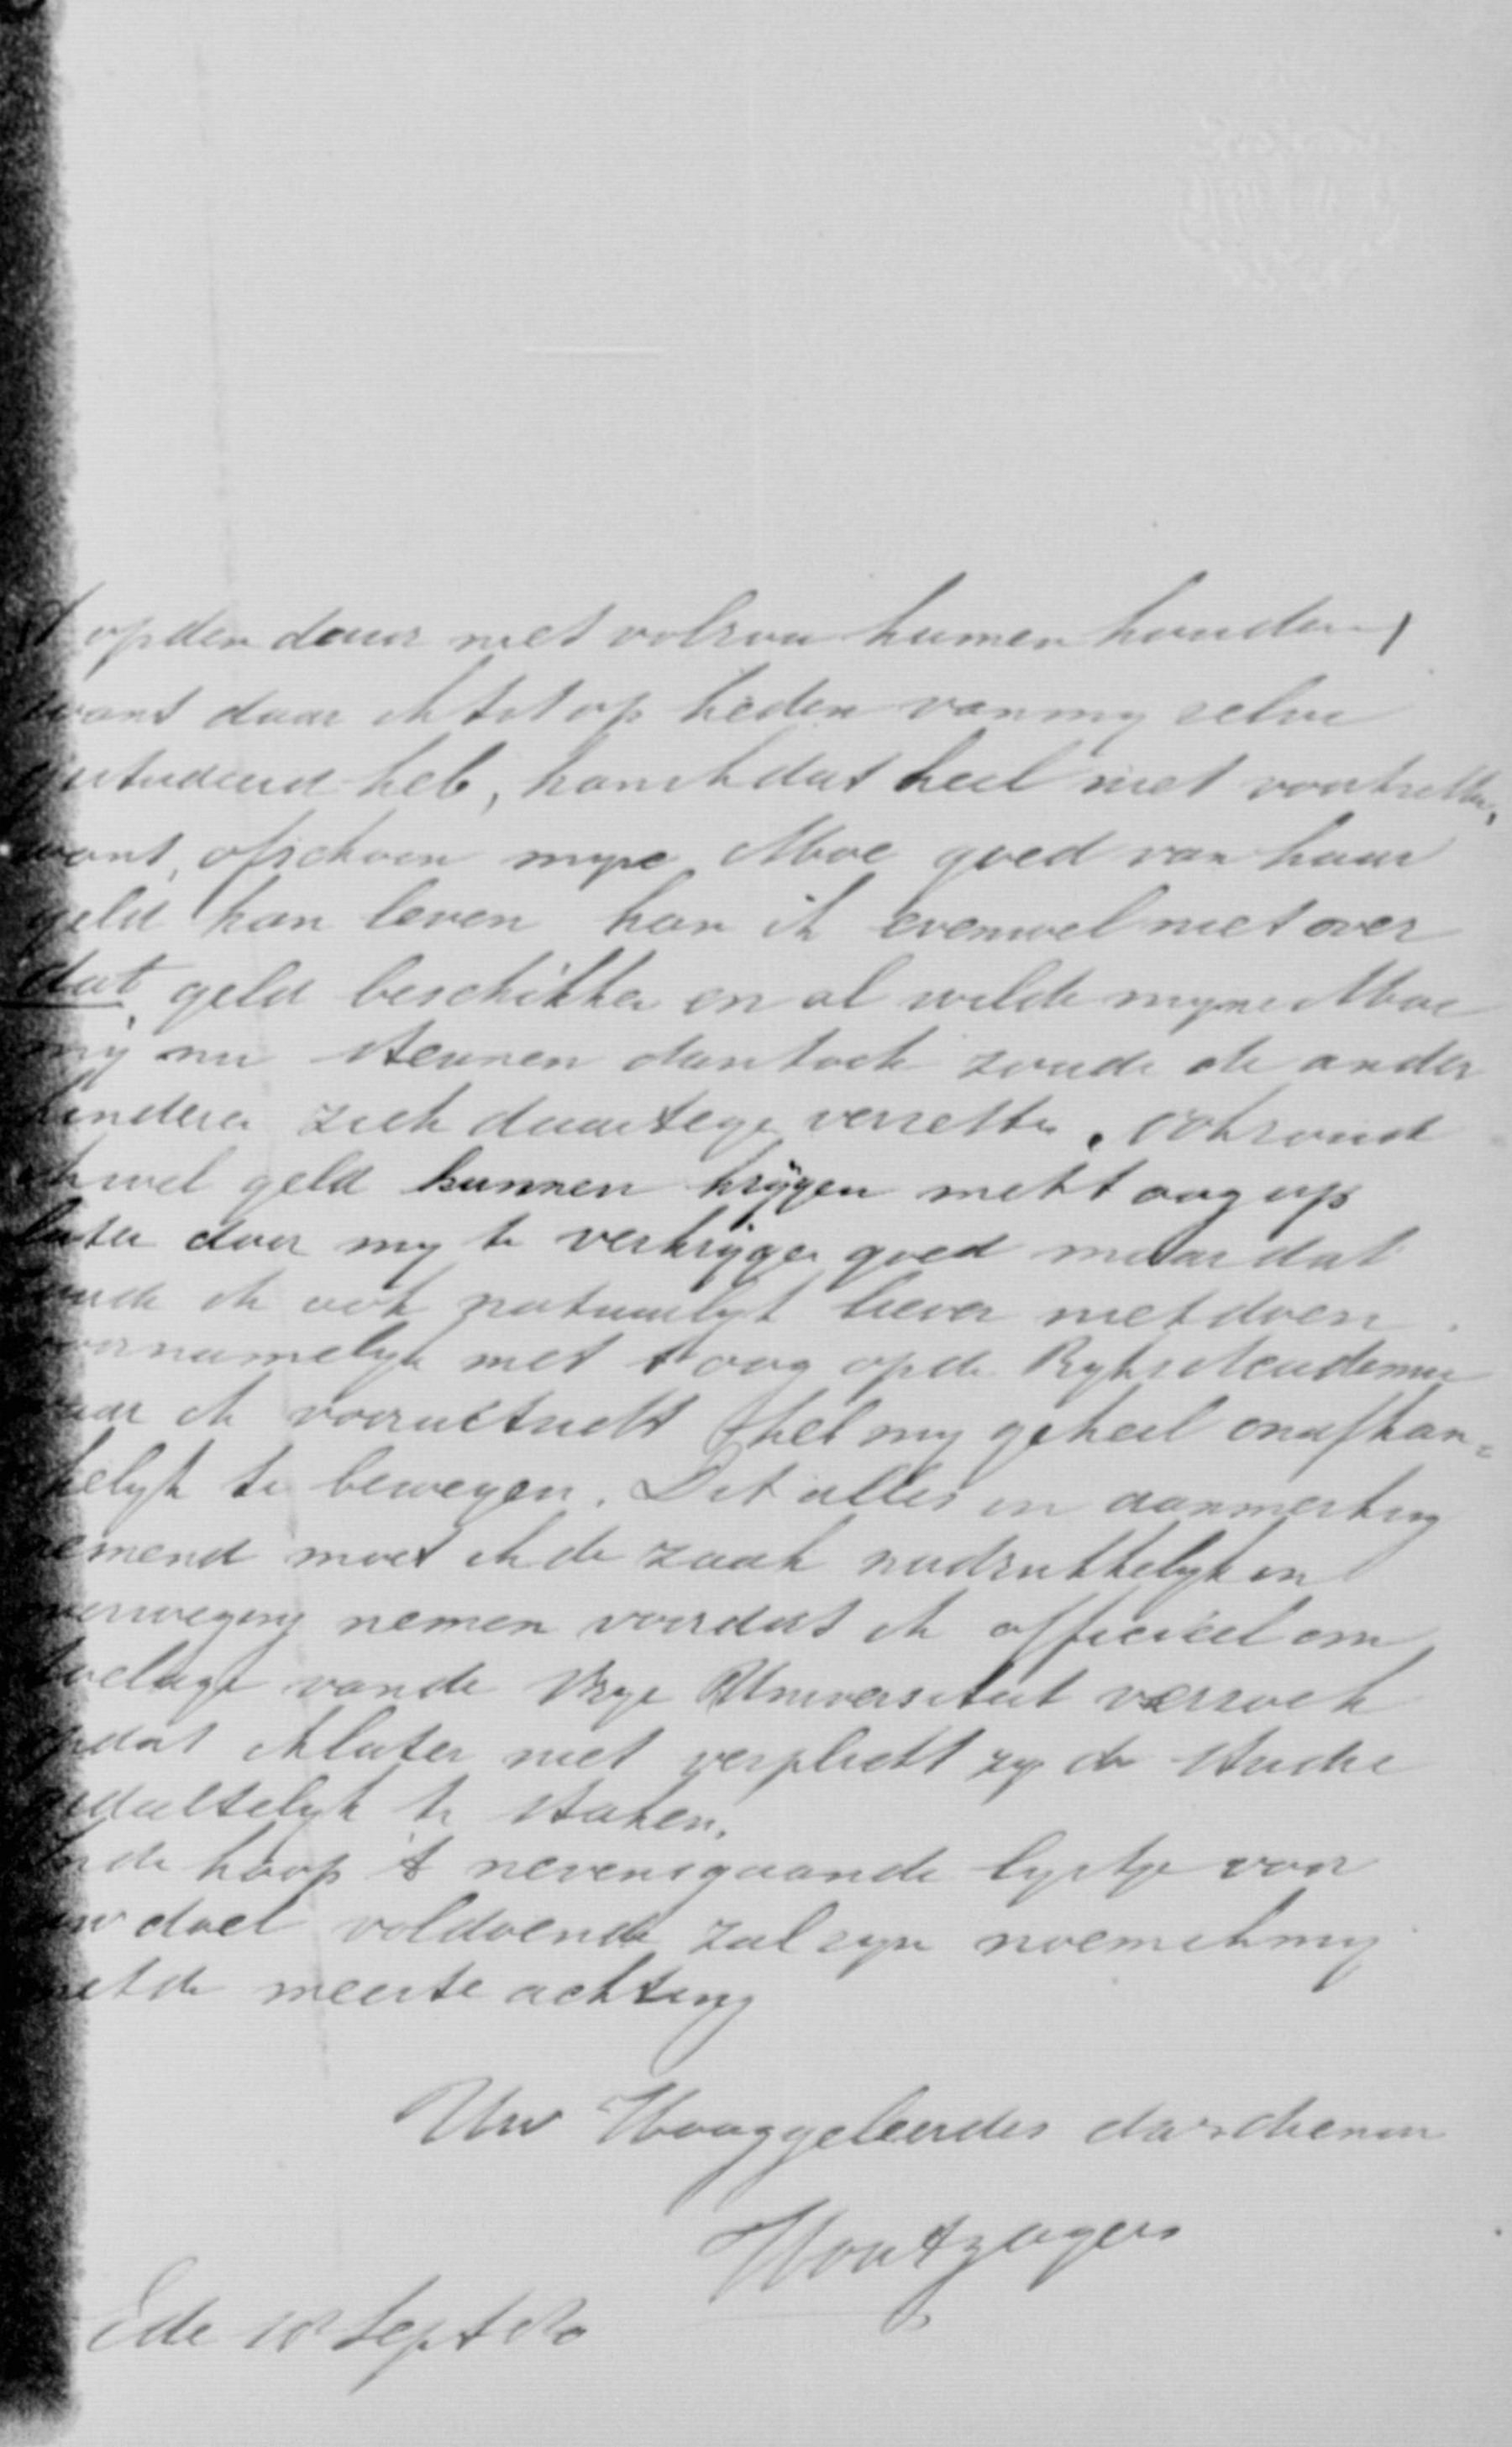 't op den duur niet vol zou kunnen houden,
want daar ik tot op heden van my zelve
gestudeerd heb, kan ik dat heel niet voortzetten,
want, ofschoon myne Moe goed van haar
geld kan leven kan ik evenwel niet over
dat geld beschikken en al wilde myne Moe
mij nu steunen dan toch zoude de ander
kinderen zich daartege verzetten. ook zoud
ik wel geld kunnen krijgen met 't oog op
later door my te verkrijgen goed maar dat
zoude ik ook natuurlyk liever niet doen.
voornamelyk met 't oog op de Ryks Academie
waar ik vooruitzicht heb my geheel onafhan=
kelyk te bewegen. Dit alles in aanmerking
nemend moet ik de zaak nadrukkelyk in
overweging nemen voordat ik officieel om
toelage van de Vrye Universiteit verzoek
opdat ik later niet verplicht zy de studie
gedeeltelyk te staken.
In de hoop 't nevensgaande lystje voor
uw doel voldoende zal zyn noem ik my
met de meeste achting
Uw Hooggeleerdes dw dienaar
Houtzagers
Ede 18 Sept 80